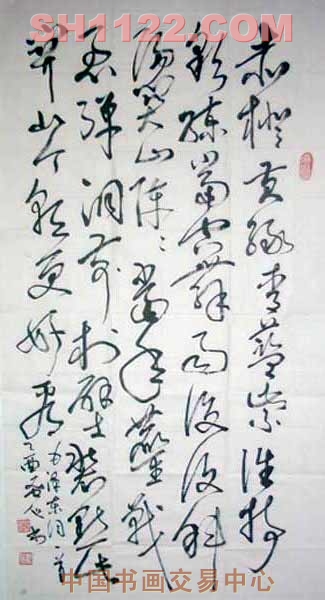 SH1122.COM
赤橙黄绿青蓝紫谁持
彩练当空舞雨后复斜
阳关山阵々当年鏖战
急弹洞前村壁装点此
关山今朝更好看
毛泽东词一首
乙酉
书
中国书画交易中心